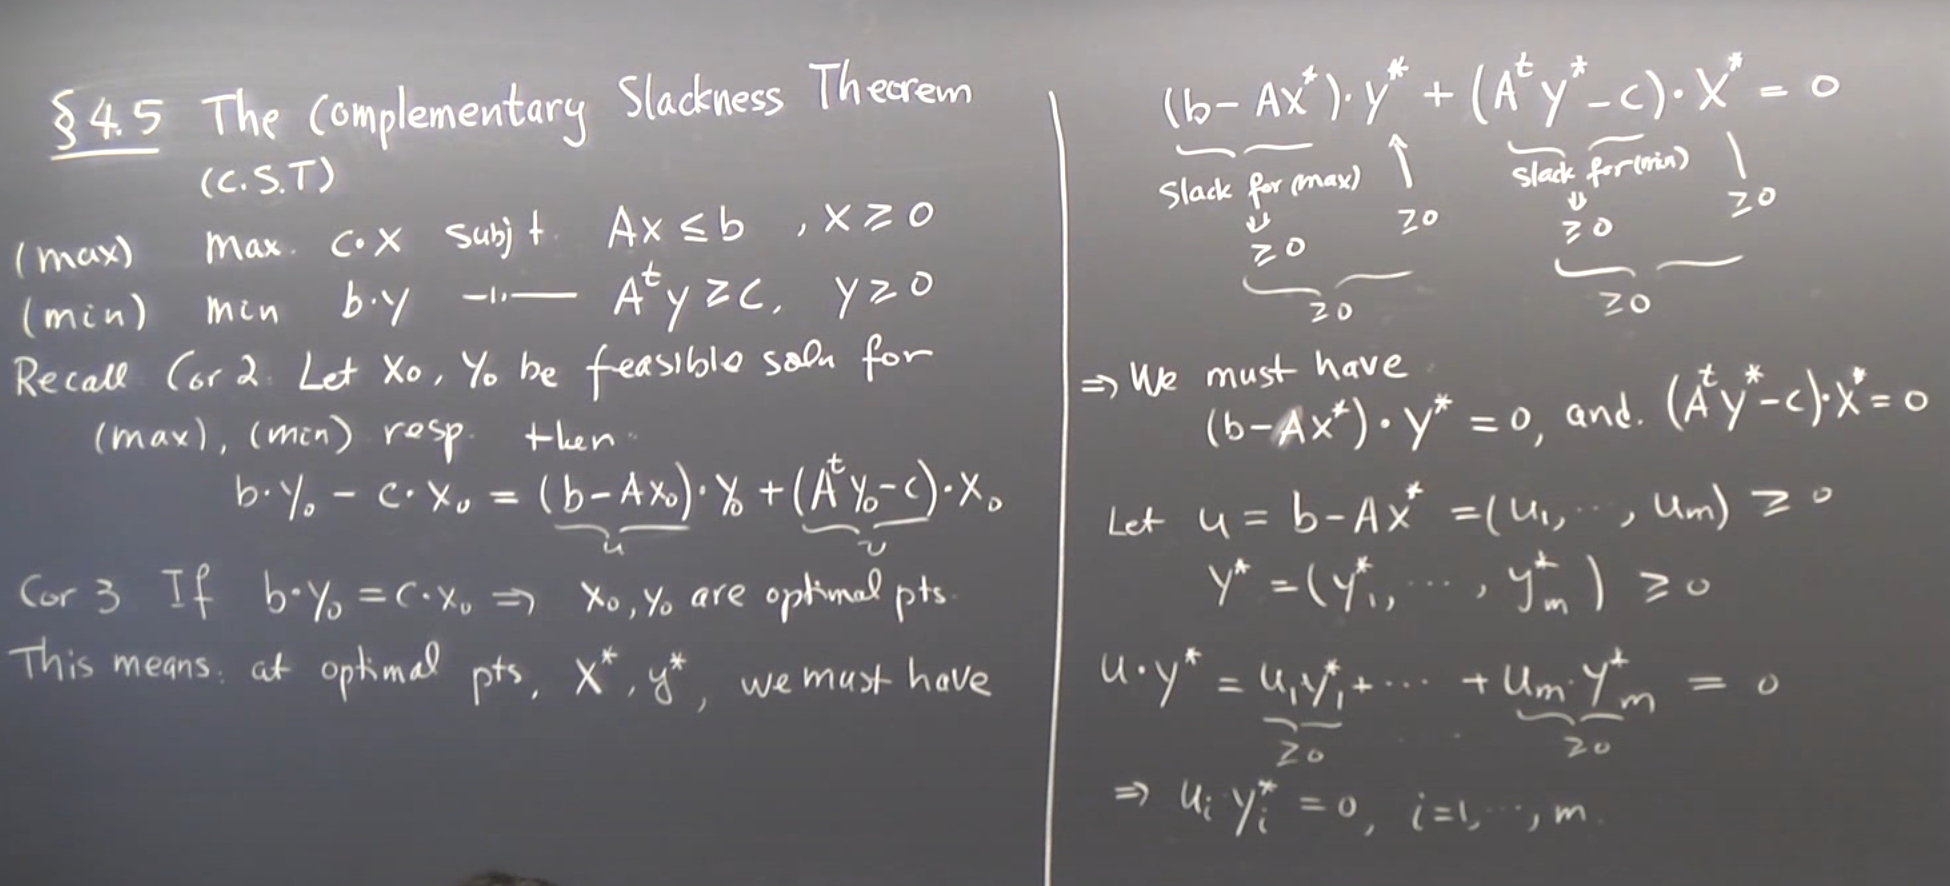 §4.5 The Complementary Slackness Theorem
(C.S.T)
(max) max. c·x subjt. Ax ≤ b , x ≥ 0
(min) min b·y —ıı— Aᵗy ≥ c, y ≥ 0
Recall Cor 2. Let x₀, y₀ be feasible soln for
(max), (min) resp. then
b·y₀ - c·x₀ = (b-Ax₀)·y₀ + (Aᵗy₀-c)·x₀
u v
Cor 3 If b·y₀ = c·x₀ ⇒ x₀, y₀ are optimal pts.
This means: at optimal pts, x*, y*, we must have
(b-Ax*)·y* + (Aᵗy*-c)·x* = 0
Slack for (max) ≥0 Slack for (min) ≥0
⇓ ≥0 ⇓ ≥0
≥0 ≥0
⇒ We must have
(b-Ax*)·y* = 0, and. (Aᵗy*-c)·x* = 0
Let u = b-Ax* = (u₁, ..., uₘ) ≥ 0
y* = (y₁*, ..., yₘ*) ≥ 0
u·y* = u₁y₁* + ... + uₘ·yₘ* = 0
≥0 .... ≥0
⇒ uᵢ yᵢ* = 0, i=1, ..., m.